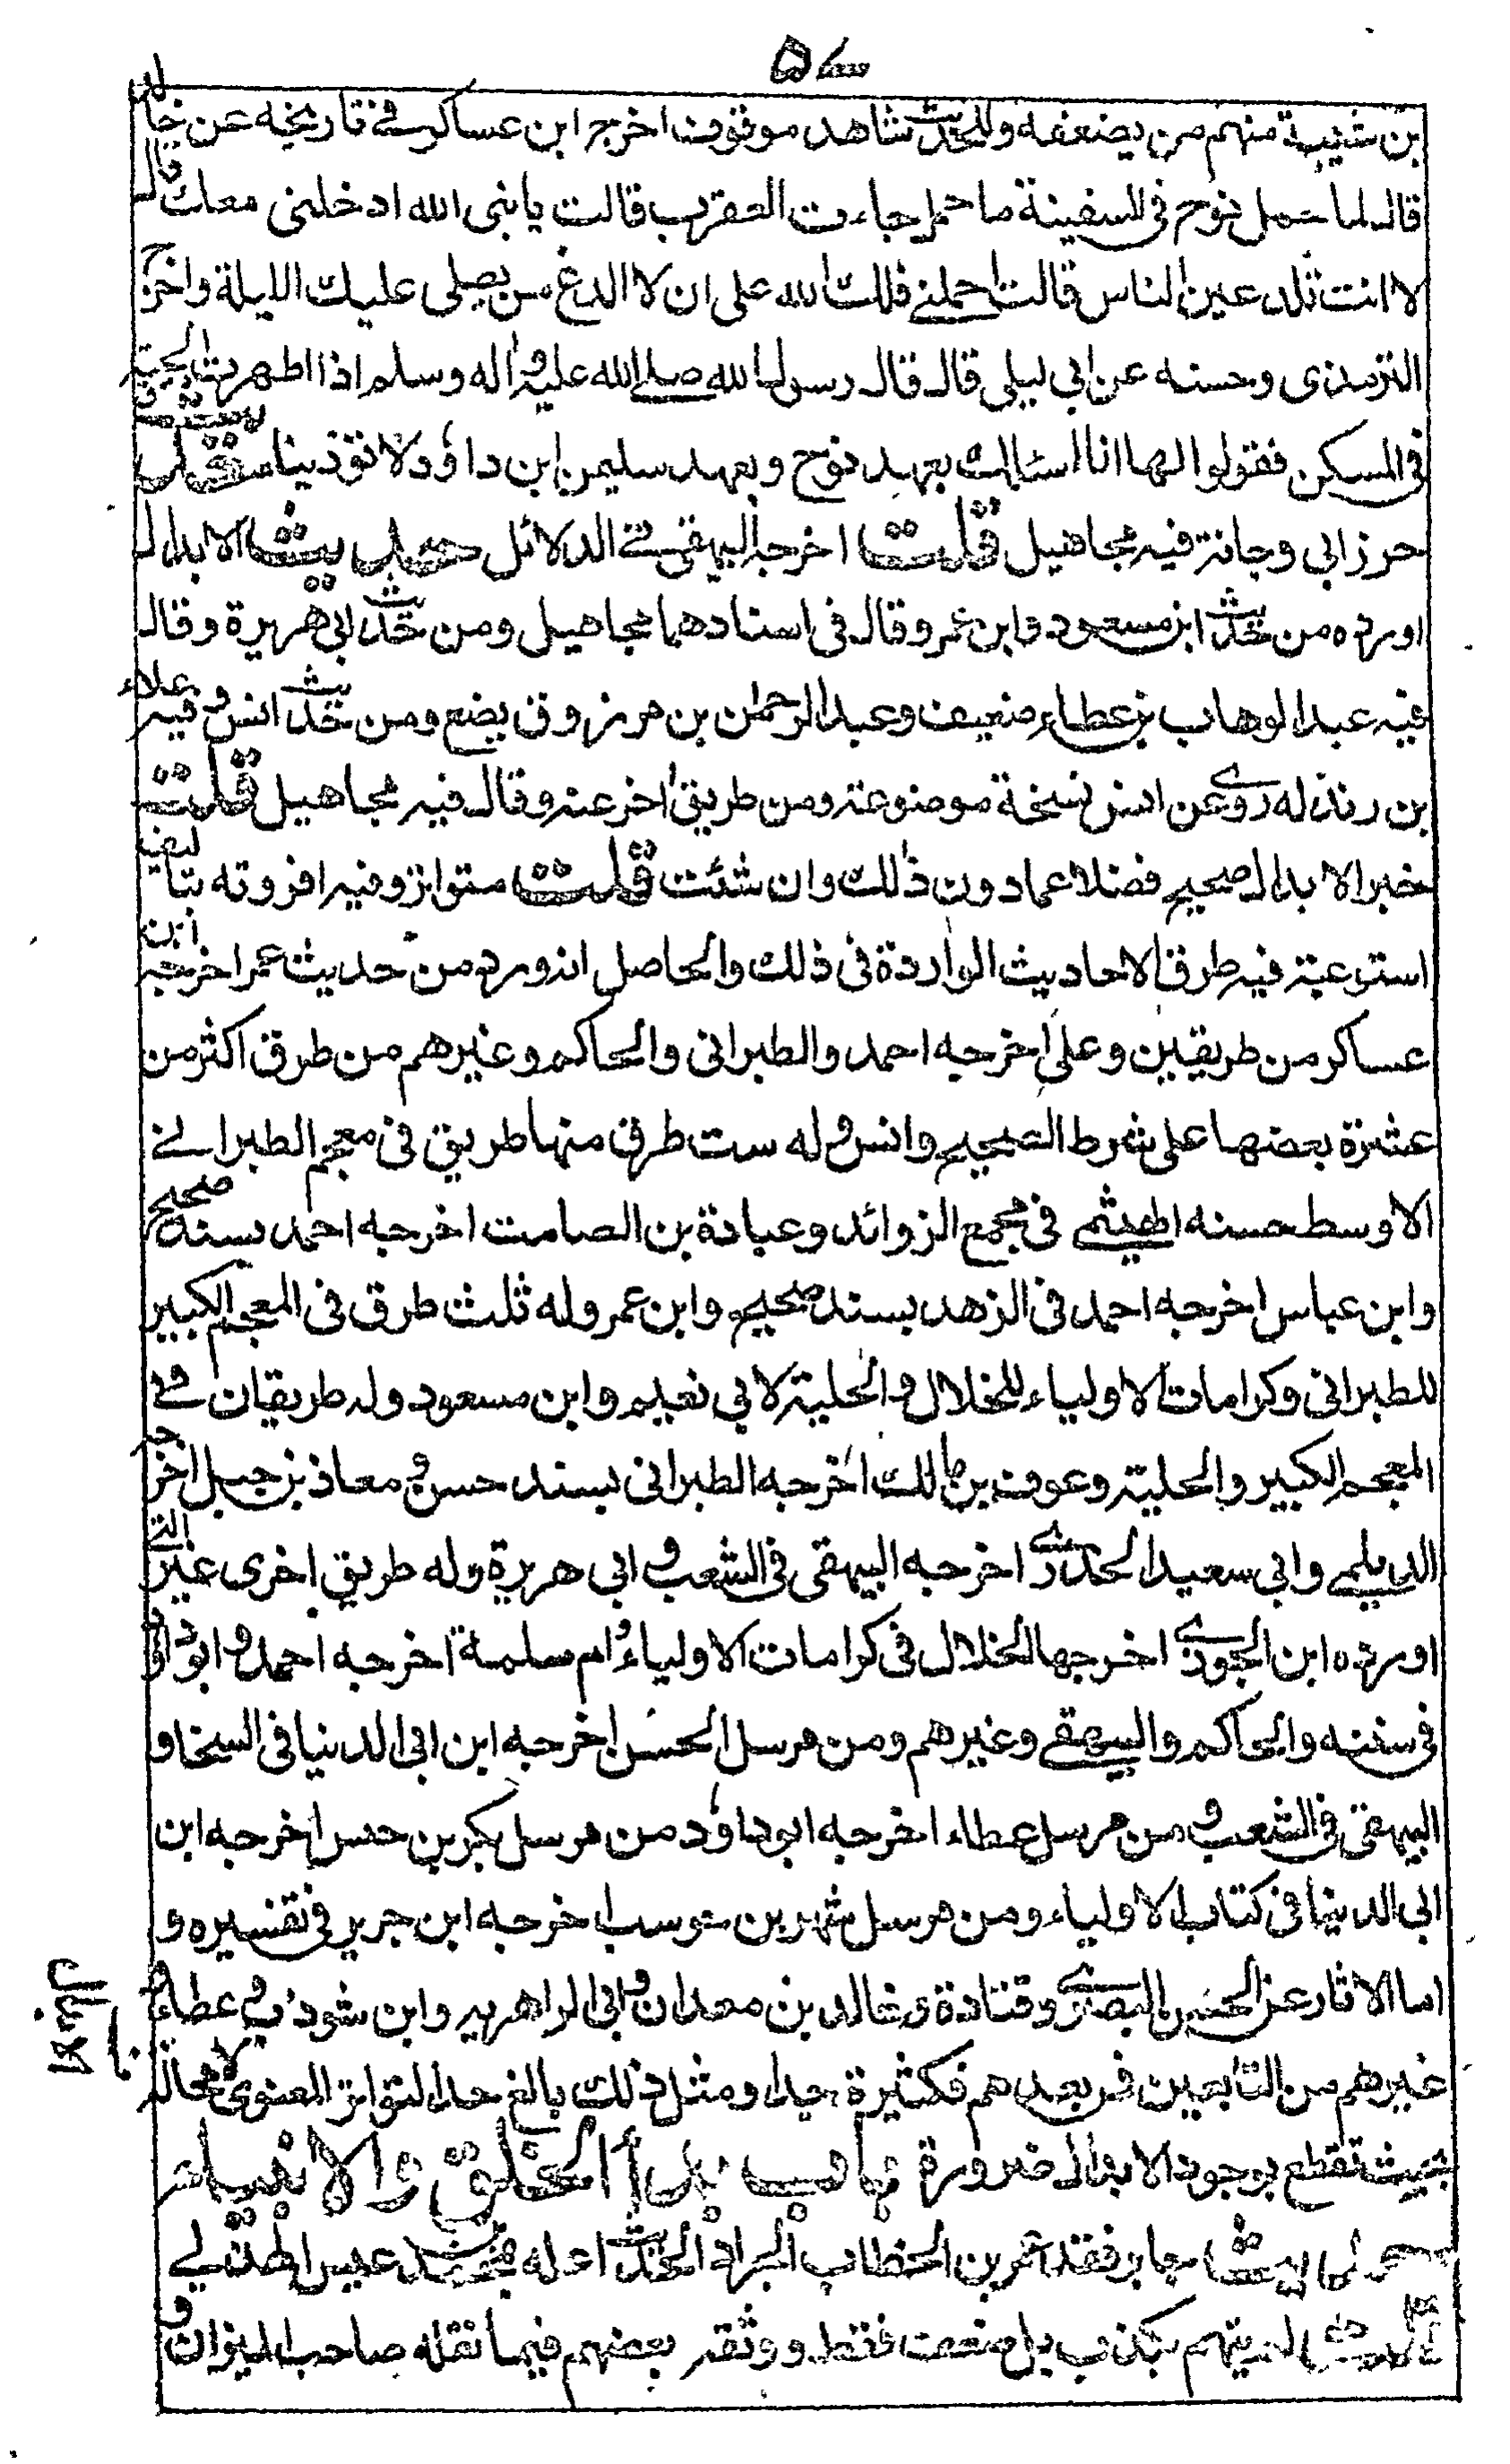 بن شبيبة منهم من يضعفه وللحديث شاهد موقوف اخرجه ابن عساكر في تاريخه عن خالد
قال لما حمل نوح في السفينة ما حمل جاءت العقرب قالت يا نبي الله ادخلني معك قال
لا انت تلدعين الناس قالت احملني فلك الله على ان لا الدغ من يصلى عليك الليلة واخرج
الترمذى وحسنه عن ابي ليلى قال قال رسول الله صلى الله عليه واله وسلم اذا ظهرت الحية
في المسكن فقولوا لها انا اسئالك بعهد نوح وبعهد سليمن ابن داؤد لا تؤذينا حديث
حرز ابي دجانة فيه مجاهيل قلت اخرجه البيهقي في الدلائل حديث الابدال
اورده من حديث ابن مسعود وابن عمر وقال في اسنادهما مجاهيل ومن حديث ابي هريرة وقال
فيه عبد الوهاب بن عطاء ضعيف وعبد الرحمن بن مرزوق يضع ومن حديث انس وفيه علاء
بن زيدله روى عن انس نسخة موضوعة ومن طريق اخر عنه وقال فيه مجاهيل قلت
خبر الابدال صحيح فضلا عما دون ذلك وان شئت قلت متواتر وفيه افردته بتاليف
استوعبت فيه طرق الاحاديث الواردة في ذلك والحاصل انه ورد من حديث عمر اخرجه ابن
عساكر من طريقين وعلى اخرجه احمد والطبراني والحاكم وغيرهم من طرق اكثر من
عشرة بعضها على شرط الصحيح وانس وله ست طرق منها طريق في معجم الطبراني
الاوسط حسنه الهيثمي في مجمع الزوائد وعبادة بن الصامت اخرجه احمد بسند صحيح
وابن عباس اخرجه احمد في الزهد بسند صحيح وابن عمر وله ثلث طرق في المعجم الكبير
للطبراني وكرامات الاولياء للخلال والحلية لابي نعيم وابن مسعود وله طريقان في
المعجم الكبير والحلية وعوف بن مالك اخرجه الطبراني بسند حسن ومعاذ بن جبل اخرجه
الديلمي وابي سعيد الخدرى اخرجه البيهقي في الشعب وابي هريرة وله طريق اخرى غير التي
اورده ابن الجوزى اخرجها الخلال في كرامات الاولياء وام سلمة اخرجه احمد وابو داؤد
في سننه والحاكم والبيهقي وغيرهم ومن مرسل الحسن اخرجه ابن ابي الدنيا في السخاء و
البيهقي في الشعب ومن مرسل عطاء اخرجه ابو داؤد من مرسل بكر بن خنيس اخرجه ابن
ابي الدنيا في كتاب الاولياء ومن مرسل شهر بن حوسب اخرجه ابن جرير في تفسيره و
اما الاثار عن الحسن البصرى وقتادة وخالد بن معدان وابي الزاهرية وابن شوذب وعطاء و
غيرهم من التابعين فمن بعدهم فكثيرة جدا ومثل ذلك بالغ حد التواتر المعنوى لا محالة
بحيث تقطع بوجود الابدال ضرورة باب بدأ الخلق والانبياء
حديث جابر فقد عمر بن الخطاب الجراد الحديث اعله بمحمد بن عيسى الهذلي
قلت لم يتهم بكذب بل ضعف فقط ووثقه بعضهم فيما نقله صاحب الميزان و